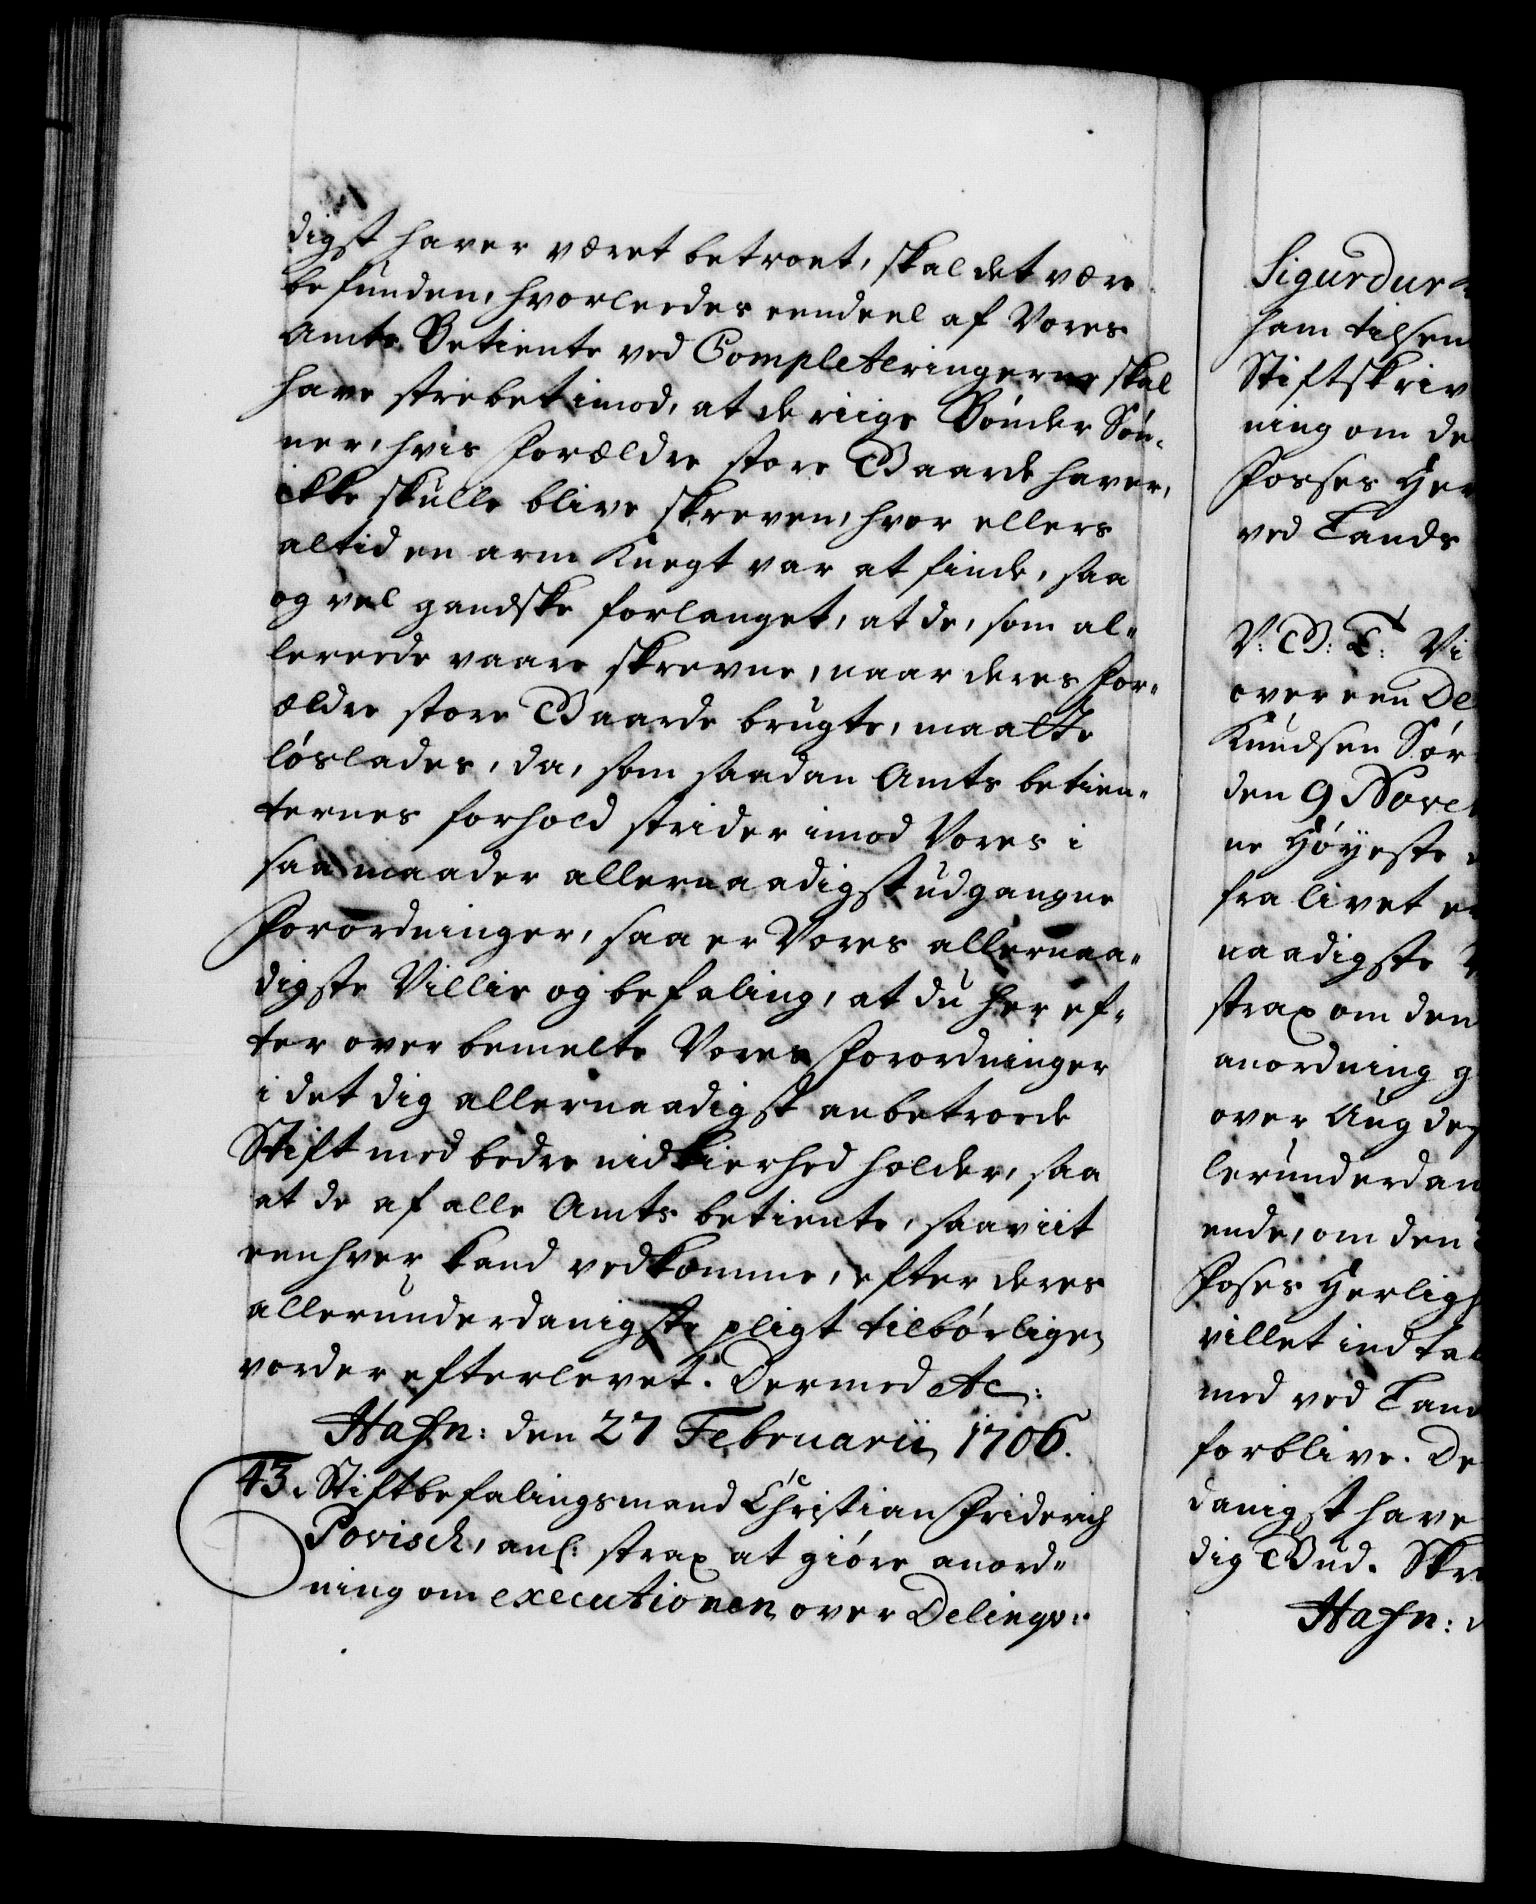 digst haver været betroet, skal det være
befunden, hvorleedes eendeel af Vores
Amts Betiente ved Completeringerne skal
have stræbet imod, at de riige Bønder Søn-
ner, hvis Forældre store Gaarde haver,
ikke skulle blive skreven, hvor ellers
altid en arm Knegt var at finde, saa
og vel gandske forlanget, at de, som al-
lereede vaare skrevne, naar deres For-
ældre store Gaarde brugte, maatte
løslades, da, som saadan Amts betien-
ternes forhold strider imod Vores i
saa maader allernaadigst udgangne
Forordninger, saa er Vores allernaa-
digste Villie og befaling, at du her ef-
ter over bemelte Vores Forordninger
i det dig allernaadigst anbetroede
Stift med bedre nidkierhed holder, saa
at de af alle Amts betiente, saaviit
eenhver kand vedkomme, efter deres
allerunderdanigste pligt tilbørligen
vorder efterlevet. Dermed etc:
Hafn: den 27 Februarii 1706.
43. Stiftbefalingsmand Christian Friderich
Povisch, anl: strax at giøre anord-
ning om executionen over Delinqv:
Sigurdur
ham tilsen
Stiftskriv
ning om de
Posses Her
ved Lands
V: G: T: Vi
over een De
Knudsen Sør
den 9 Nove
ne Høyeste
fra livet
naadigste
strax om den
anordning g
over Aug de
lerunderdan
ende, om den
Poses Herlig
villet indta
med ved Lan
forblive. De
danigst have
dig Gud. Skr
Hafn: